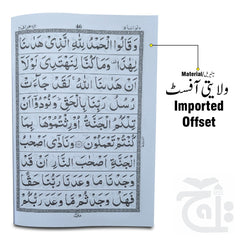 46
وَقَالُوا الْحَمْدُ لِلّٰهِ الَّذِیْ هَدٰىنَا
لِهٰذَا وَمَا كُنَّا لِنَهْتَدِیَ لَوْلَاۤ
اَنْ هَدٰىنَا اللّٰهُ لَقَدْ جَآءَتْ
رُسُلُ رَبِّنَا بِالْحَقِّ وَنُوْدُوْۤا اَنْ
تِلْكُمُ الْجَنَّةُ اُوْرِثْتُمُوْهَا بِمَا
كُنْتُمْ تَعْمَلُوْنَ وَنَادٰۤى اَصْحٰبُ
الْجَنَّةِ اَصْحٰبَ النَّارِ اَنْ قَدْ
وَجَدْنَا مَا وَعَدَنَا رَبُّنَا حَقًّا
فَهَلْ وَجَدْتُّمْ مَّا وَعَدَ رَبُّكُمْ
Material
ولایتی آفسٹ
Imported
Offset